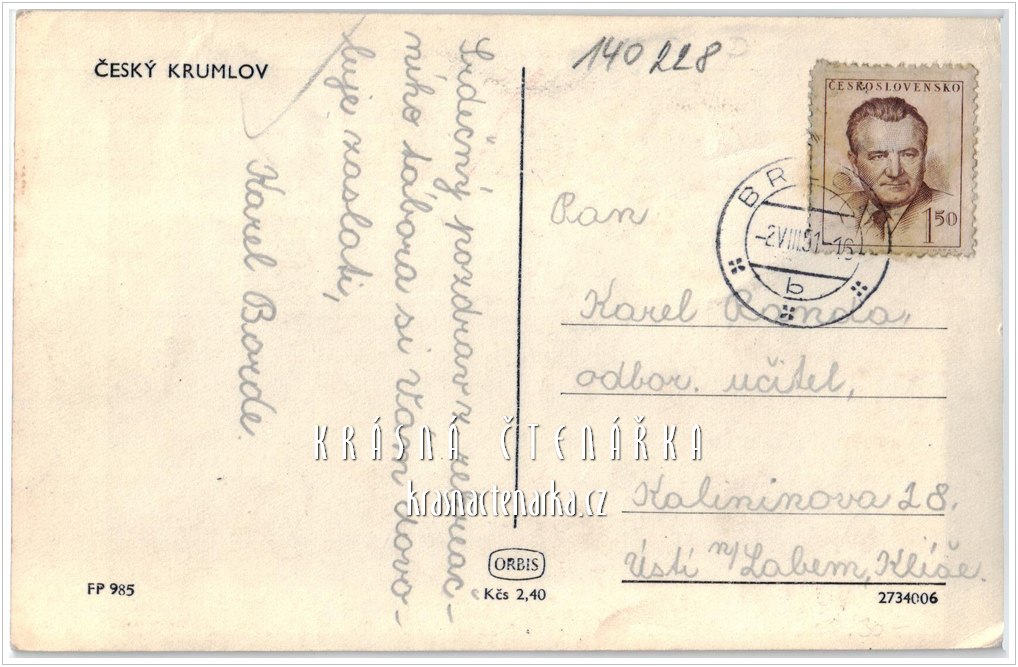 ČESKÝ KRUMLOV
140 228
Srdečný pozdrav z rekreač-
ního tábora si Vám dovo-
luje zaslati,
Karel Borde.
ČESKOSLOVENSKO
1 50
-2.VIII.51-16
b
Pan
Karel Randa,
odbor. učitel,
Kalininova 28.
Ústí n/Labem, Klíše.
KRÁSNÁ ČTENÁŘKA
krasnactenarka.cz
ORBIS
Kčs 2,40
FP 985
2734006